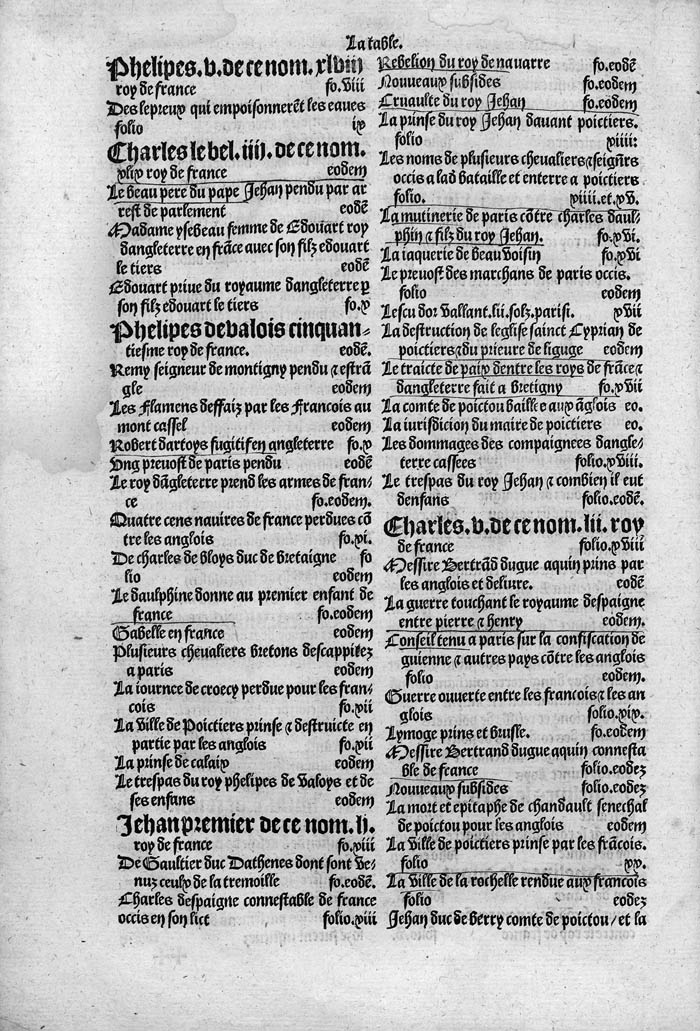 La table.
Phelipes.v.de ce nom.xlviii
roy de france fo.viii
Des lepreux qui empoisonnerẽt les eaues
folio ix
Charles le bel.iiii.de ce nom.
xlix roy de france eodem
Le beau pere du pape Jehan pendu par ar
rest de parlement eodẽ
Madame ysebeau femme de Edouart roy
dangleterre en frãce auec son filz edouart
le tiers eodẽ
Edouart priue du royaume dangleterre p
son filz edouart le tiers fo.x
Phelipes de valois cinquan-
tiesme roy de france. eodẽ.
Remy seigneur de montigny pendu ⁊ estrã
gle eodem
Les Flamens deffaiz par les Francois au
mont cassel eodem
Robert dartoys fugitif en angleterre fo.x
Vng preuost de paris pendu eodẽ
Le roy dãgleterre prend les armes de fran-
ce fo.eodem.
Quatre cens nauires de france perdues cõ
tre les anglois fo.xi.
De charles de bloys duc de bretaigne fo
lio eodem
Le daulphine donne au premier enfant de
france fo.eodem
Gabelle en france eodem
Plusieurs cheualiers bretons descappitez
a paris eodem
La iournee de croecy perdue pour les fran-
cois fo.xii
La ville de Poictiers prinse ⁊ destruicte en
partie par les anglois fo.xii
La prinse de calaix eodem
Le trespas du roy phelipes de Valoys et de
ses enfans eodem
Jehan premier de ce nom.li.
roy de france fo.xiii
De Gaultier duc Dathenes dont sont ve-
nuz ceulx de la tremoille fo.eodẽ.
Charles despaigne connestable de france
occis en son lict folio.xiii
Rebelion du roy de nauarre fo.eodẽ
Nouueaux subsides fo.eodem
Cruaulte du roy Jehan fo.eodem
La prinse du roy Jehan dauant poictiers.
folio xiiii:
Les noms de plusieurs cheualiers⁊seigñrs
occis a lad bataille et enterre a poictiers
folio. xiiii.et.xv.
La mutinerie de paris cõtre charles daul-
phin ⁊ filz du roy Jehan. fo.xvi.
La iaquerie de beauuoisin fo.xvi
Le preuost des marchans de paris occis.
folio eodem
Lescu dor vallant.lii.solz.parisi. xvii
La destruction de leglise sainct Cyprian de
poictiers⁊du prieure de liguge eodem
Le traicte de paix dentre les roys de frãce⁊
dangleterre fait a bretigny fo.xvii
La comte de poictou baillee aux ãglois eo.
La iurisdicion du maire de poictiers eo.
Les dommages des compaignees dangle-
terre cassees folio.xviii.
Le trespas du roy Jehan ⁊ combien il eut
denfans folio.eodẽ.
Charles.v.de ce nom.lii.roy
de france folio.xviii
Messire Bertrãd dugue aquin prins par
les anglois et deliure. eodẽ
La guerre touchant le royaume despaigne
entre pierre ⁊ henry eodem.
Conseil tenu a paris sur la confiscation de
guienne ⁊ autres pays cõtre les anglois
folio eodem.
Guerre ouuerte entre les francois⁊ les an
glois folio.xix.
Lymoge prins et brusle. fo.eodem
Messire Bertrand dugue aquin connesta
ble de france folio.eodez
Nouueaux subsides folio.eodez
La mort et epitaphe de chandault seneschal
de poictou pour les anglois eodem
La ville de poictiers prinse par les frãcois.
folio xx.
La ville de la rochelle rendue aux francois
folio eodez
Jehan duc de berry comte de poictou/et la